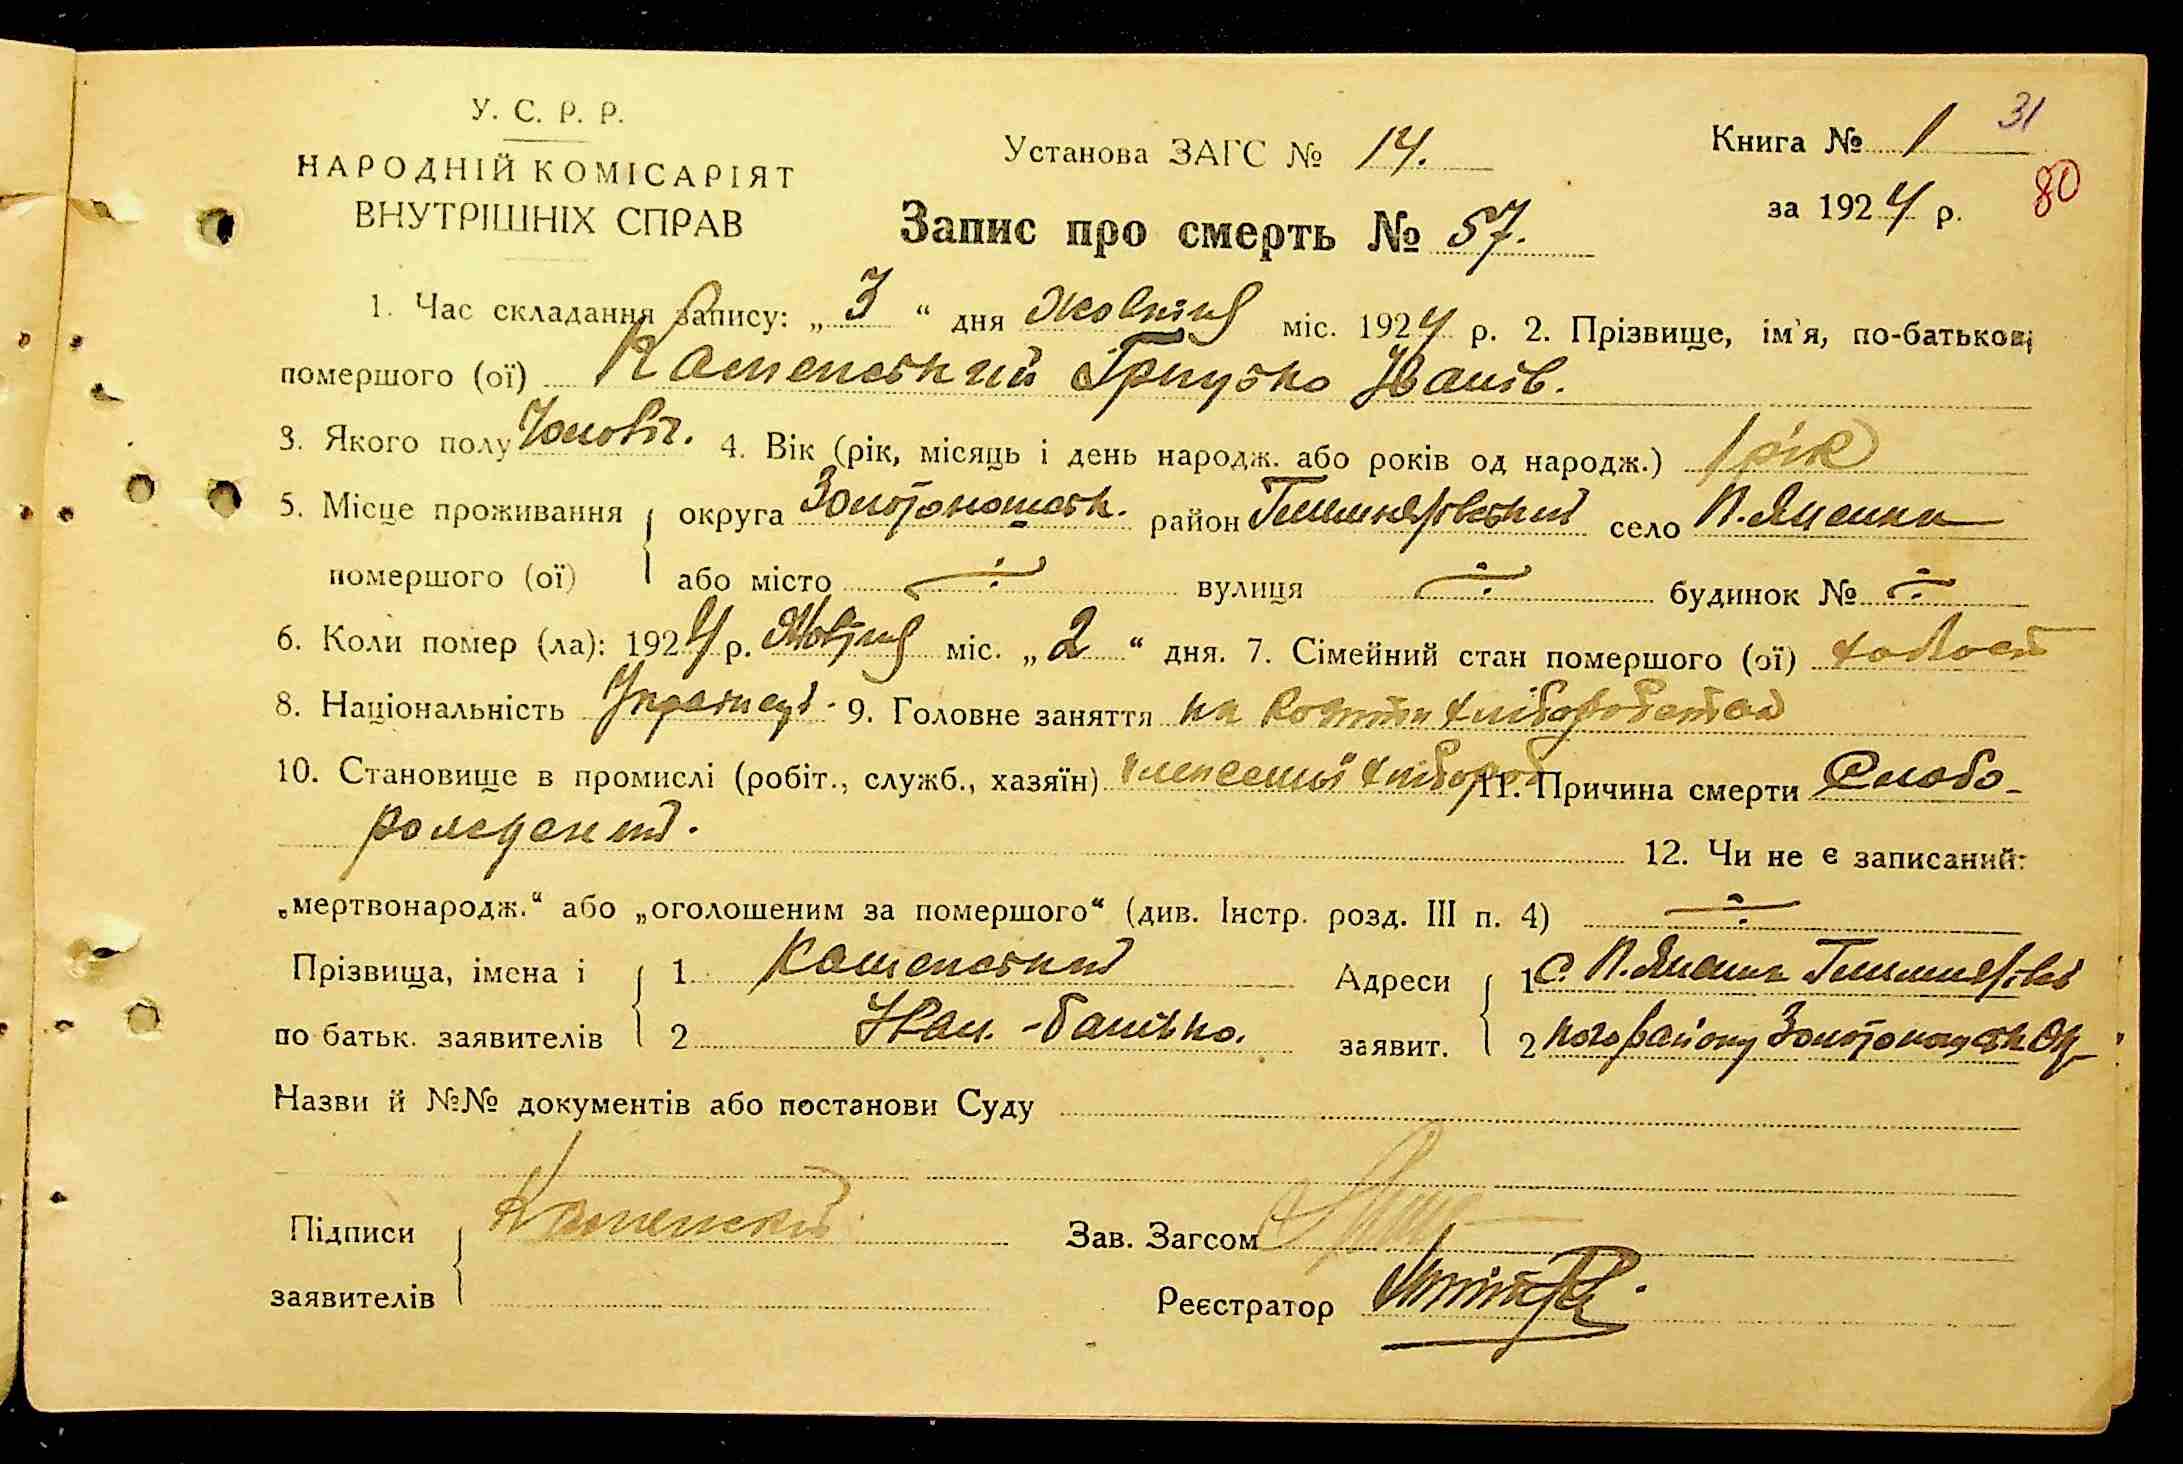 31
У. С. Р. Р.
НАРОДНІЙ КОМІСАРІЯТ
ВНУТРІШНІХ СПРАВ
Установа ЗАГС № 14.
Книга № 1
за 1924 р.
80
Запис про смерть № 57.
1. Час складання запису: „ 3 “ дня Жовтня міс. 1924 р. 2. Прізвище, ім'я, по-батькові
помершого (ої) Каменський Грицько Іванів.
3. Якого полу Чоловіч. 4. Вік (рік, місяць і день народж. або років од народж.) 1 рік
5. Місце проживання округа Золотоношськ. район село
помершого (ої) або місто ÷ вулиця ÷ будинок № ÷
6. Коли помер (ла): 1924 р. Жовтня міс. „ 2 “ дня. 7. Сімейний стан помершого (ої) холост
8. Національність 9. Головне заняття на
10. Становище в промислі (робіт., служб., хазяїн) 11. Причина смерти Слабо-
рождений.
12. Чи не є записаний:
„мертвонародж.“ або „оголошеним за помершого“ (див. Інстр. розд. III п. 4) ÷
Прізвища, імена і 1 Каменський Адреси 1 С.
по батьк. заявителів 2 Іван. - батько. заявит. 2 району Золотоношськ Окр
Назви й №№ документів або постанови Суду
Підписи Каменский Зав. Загсом
заявителів Реєстратор